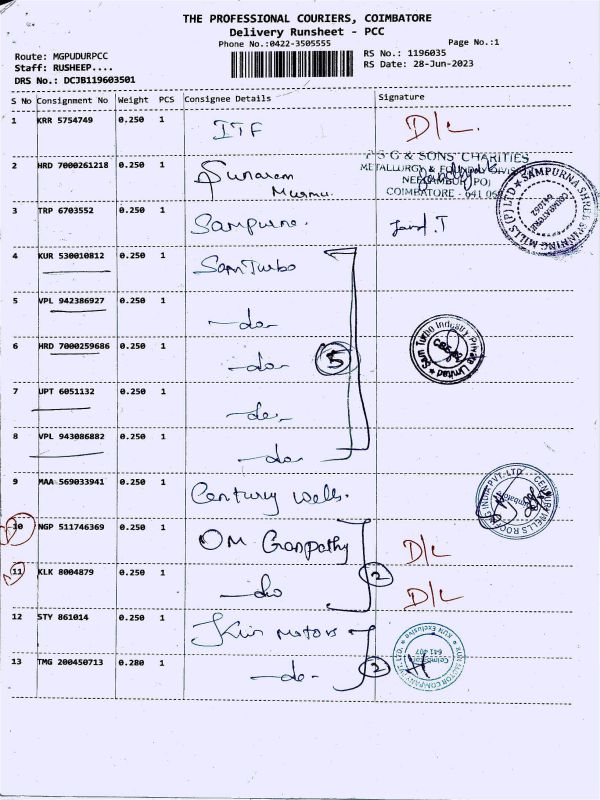 THE PROFESSIONAL COURIERS, COIMBATORE
Delivery Runsheet - PCC
Phone No.:0422-3505555
Page No.:1
Route: MGPUDURPCC
RS No.: 1196035
Staff: RUSHEEP....
RS Date: 28-Jun-2023
DRS No.: DCJB119603501
S No Consignment No Weight PCS Consignee Details Signature
1 KRR 5754749 0.250 1 ITF D/L.
2 HRD 7000261218 0.250 1 Sunarem
Murmu.
P S G & SONS' CHARITIES
METALLURGY & FOUNDRY DIVISION
NEELAMBUR (PO)
COIMBATORE - 641 062
3 TRP 6703552 0.250 1 Sampurna.
SAMPURNA SHREE SPINNING MILLS (P) LTD
COIMBATORE
641062
4 KUR 530010812 0.250 1 Sam Turbo
5 VPL 942386927 0.250 1 -do-
6 HRD 7000259686 0.250 1 -do- 5
Sam Turbo Industry Private Limited
CBE
7 UPT 6051132 0.250 1 -do-
8 VPL 943086882 0.250 1 -do-
9 MAA 569033941 0.250 1 Century wells.
CENTURY WELLS ROOFING INDIA PVT-LTD
Coimbatore
10 NGP 511746369 0.250 1 OM Ganpathy D/L
11 KLK 8004879 0.250 1 -do- 2 D/L
12 STY 861014 0.250 1 Kun motors
KUN MOTOR COMPANY PVT. LTD.
KUN Exclusive
Coimbatore
641 407
13 TMG 200450713 0.280 1 -do- 2